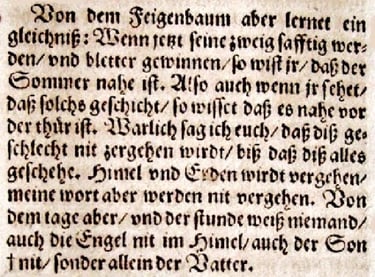 Von dem Feigenbaum aber lernet ein
gleichniß: Wenn jetzt seine zweig safftig wer-
den/ vnd bletter gewinnen/ so wist jr/ daß der
Sommer nahe ist. Also auch wenn jr sehet/
daß solchs geschicht/ so wisset daß es nahe vor
der thür ist. Warlich sag ich euch/ daß diß ge-
schlecht nit zergehen wirdt/ biß daß diß alles
geschehe. Himel vnd Erden wirdt vergehen/
meine wort aber werden nit vergehen. Von
dem tage aber/ vnd der stunde weiß niemand/
auch die Engel nit im Himel/ auch der Son
† nit/ sonder allein der Vatter.